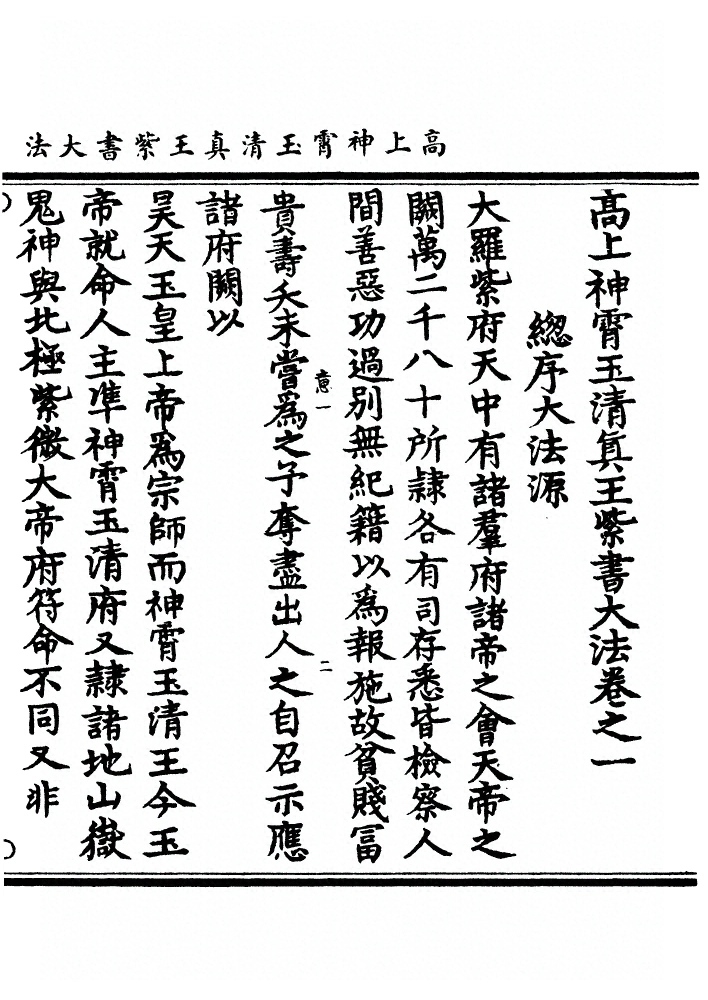 高上神霄玉清真王紫書大法
髙上神霄玉清真王紫書大法卷之一
緫序大法源
大羅紫府天中有諸羣府諸帝之會天帝之
闕萬二千八十所隷各有司存悉皆檢察人
間善惡功過別無紀籍以爲報施故貧賤冨
意一
二
貴壽夭未嘗爲之予奪盡出人之自召示應
諸府闕以
昊天玉皇上帝爲宗師而神霄玉清王今玉
帝就命人主準神霄玉清府又隷諸地山嶽
鬼神與北極紫微大帝府符命不同又非